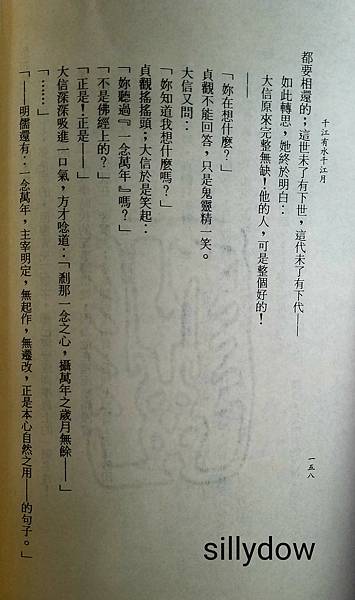 千江有水千江月
都要相還的；這世未了有下世，這代未了有下代——
如此轉思，她終於明白：
大信原來完整無缺！他的人，可是整個好的！
——
「妳在想什麼？」
貞觀不能回答，只是鬼靈精一笑。
大信又問：
「妳知道我想什麼嗎？」
貞觀搖搖頭；大信於是笑起：
「妳聽過『一念萬年』嗎？」
「不是佛經上的？」
「正是！正是——」
大信深深吸進一口氣，方才唸道：「剎那一念之心，攝萬年之歲月無餘——」
「……」
「——明儒還有：一念萬年，主宰明定，無起作，無遷改，正是本心自然之用——的句子。」
一五八
sillydow